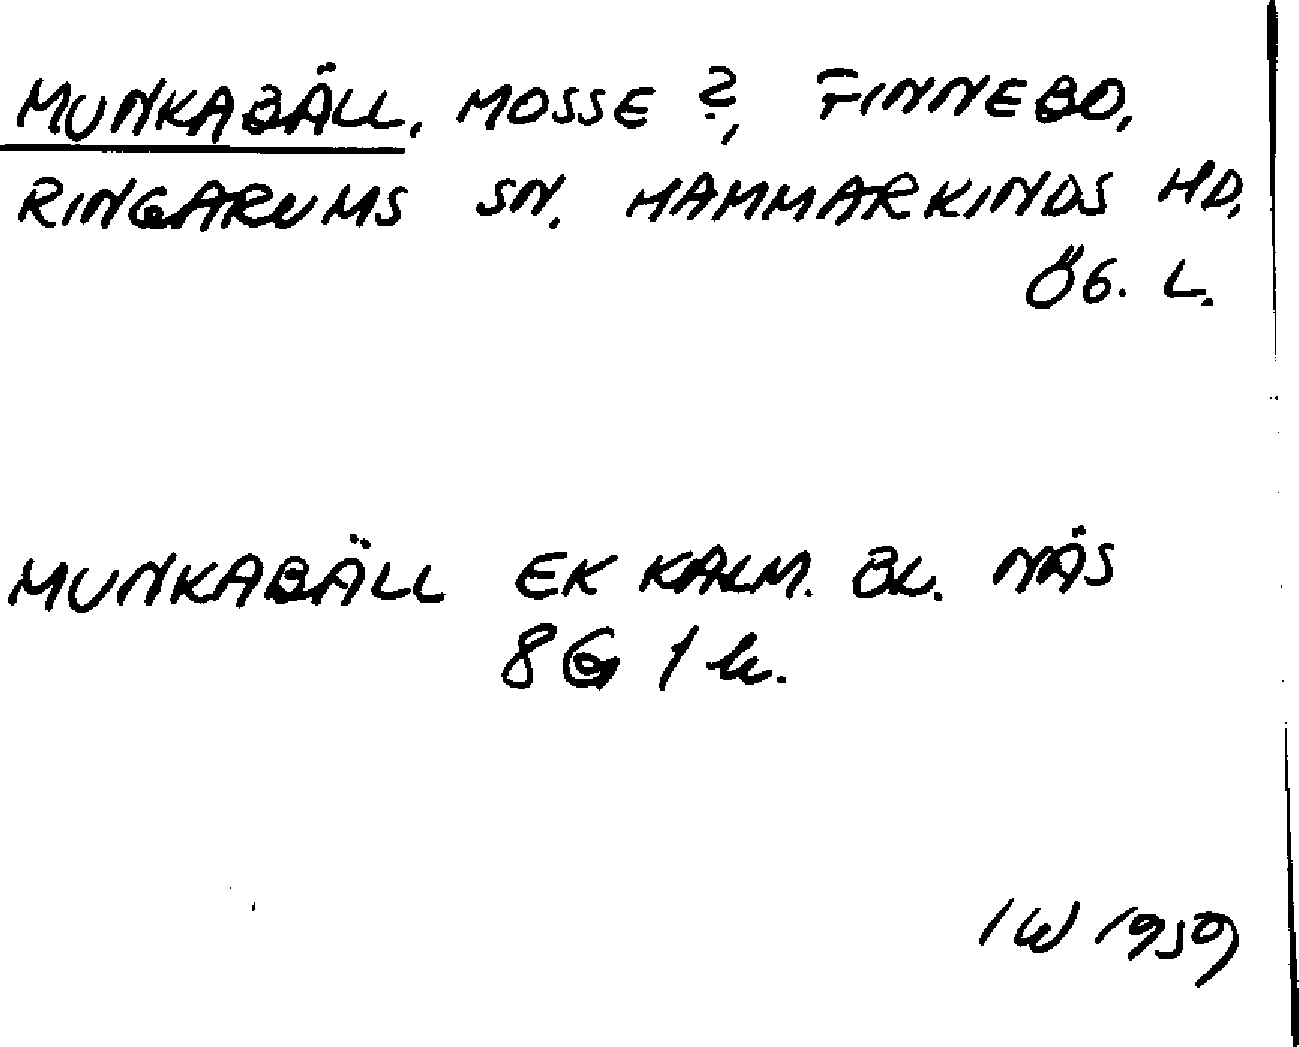 MUNKABÄLL, MOSSE ?, FINNEBO,
RINGARUMS SN. HAMMARKINDS HD,
ÖG. L.
MUNKABÄLL EK KALM. BL. NÄS
8G 1 h.
IW 1959